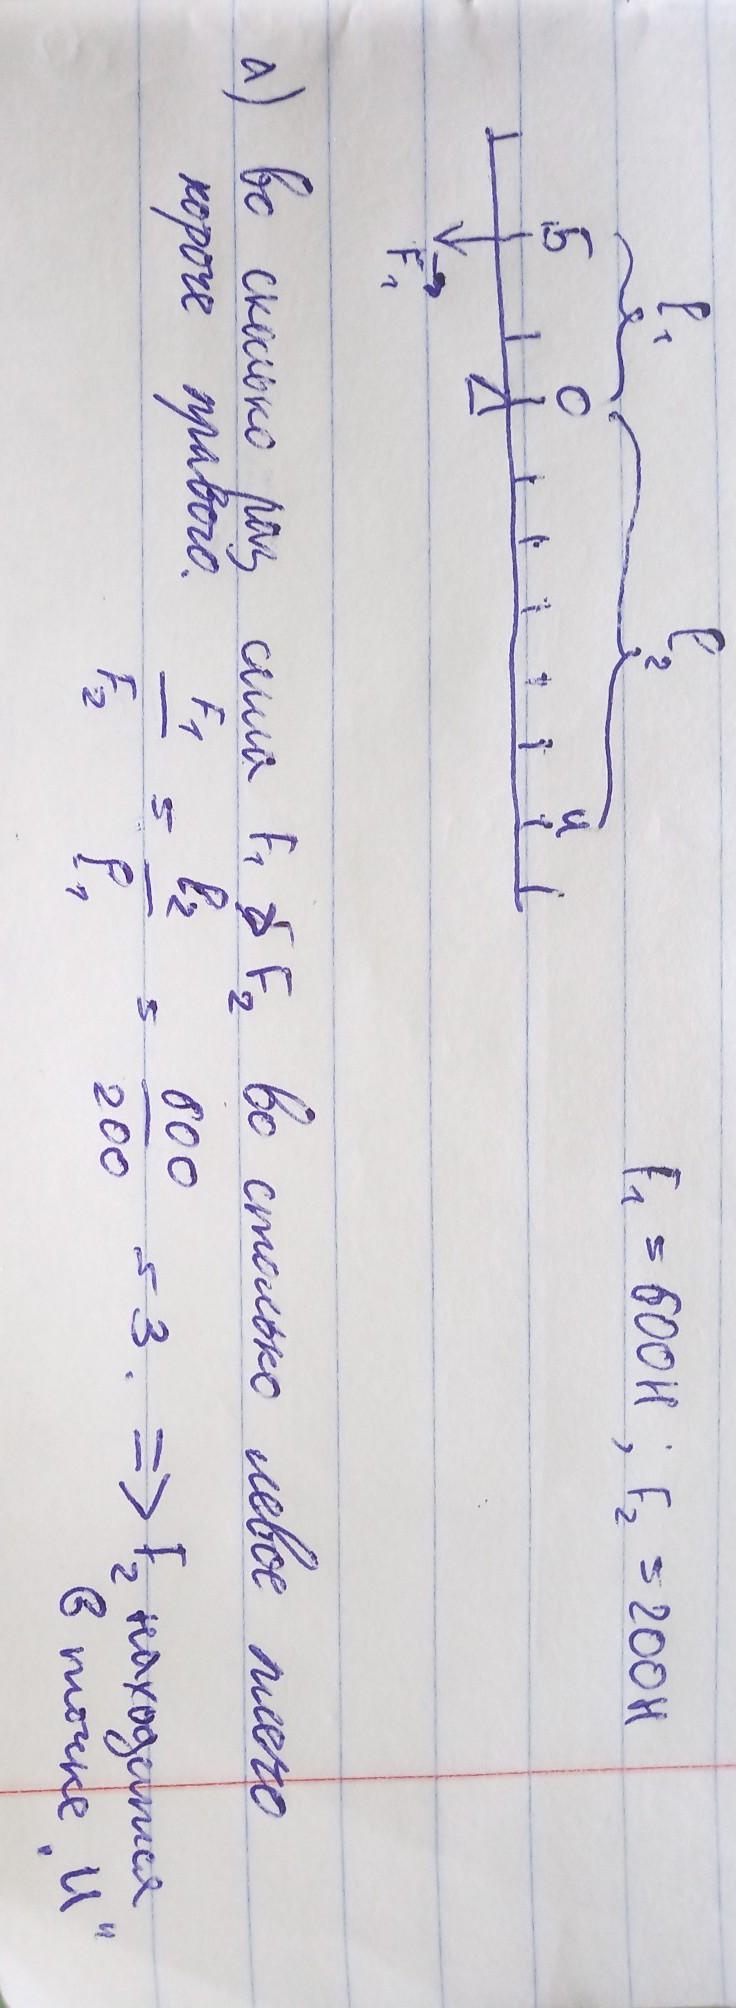 l₁ l₂ F₁ = 600Н ; F₂ = 200Н
Б О И
F₁
а) во сколько раз сила F₁ > F₂ во столько левое плечо
короче правого. F₁/F₂ = l₂/l₁ = 600/200 = 3. => F₂ находится
в точке „И"